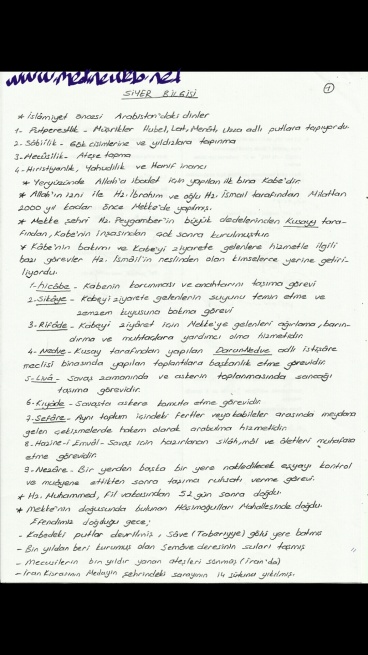 www.mednetweb.net
SİYER BİLGİSİ
1
* İslâmiyet öncesi Arabistan'daki dinler
1- Putperestlik - Müşrikler Hubel, Lat, Menât, Uzza adlı putlara tapıyordu.
2. Sâbiîlik - Gök cisimlerine ve yıldızlara tapınma
3- Mecûsîlik - Ateşe tapma
4- Hıristiyanlık, Yahudilik ve Hanif inancı
* Yeryüzünde Allah'a ibadet için yapılan ilk bina Kabe'dir.
* Allah'ın izni ile Hz. İbrahim ve oğlu Hz. İsmail tarafından Milattan
2000 yıl kadar önce Mekke'de yapılmış.
* Mekke şehri Hz. Peygamber'in büyük dedelerinden Kusayy tara-
fından, Kabe'nin inşasından çok sonra kurulmuştur.
* Kâbe'nin bakımı ve Kabe'yi ziyarete gelenlere hizmetle ilgili
bazı görevler Hz. İsmâil'in neslinden olan kimselerce yerine getiri-
liyordu.
1- hicâbe - Kabenin korunması ve anahtarını taşıma görevi
2- Sikâye - Kabeyi ziyarete gelenlerin suyunu temin etme ve
zemzem kuyusuna bakma görevi
3- Rifâde - Kabeyi ziyâret için Mekke'ye gelenleri ağırlama, barın-
dırma ve muhtaçlara yardımcı olma hizmetidir.
4- Nedve - Kusay tarafından yapılan DarunNedve adlı istişâre
meclisi binasında yapılan toplantılara başkanlık etme görevidir.
5- Livâ - Savaş zamanında ve askerin toplanmasında sancağı
taşıma görevidir.
6- Kıyâde - Savaşta askere komuta etme görevidir.
7- Sefâre - Aynı toplum içindeki fertler veya kabileler arasında meydana
gelen çekişmelerde hakem olarak arabulma hizmetidir.
8- Hazine-i Emvâl - Savaş için hazırlanan silâh, mâl ve âletleri muhafaza
etme görevidir.
9- Nezâre - Bir yerden başka bir yere nakledilecek eşyayı kontrol
ve muâyene ettikten sonra taşıma ruhsatı verme görevi.
* Hz. Muhammed, Fil vak'asından 52 gün sonra doğdu.
* Mekke'nin doğusunda bulunan Hâşimoğulları Mahallesinde doğdu.
Efendimiz doğduğu gece;
- Kabedeki putlar devrilmiş, Sâve (Taberiyye) gölü yere batmış
- Bin yıldan beri kurumuş olan Semâve deresinin suları taşmış
- Mecusilerin bin yıldır yanan ateşleri sönmüş (İran'da)
- İran Kisrasının Medayin şehrindeki sarayının 14 sütunu yıkılmış.